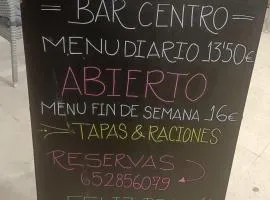 = BAR CENTRO =
MENU DIARIO 13'50€
ABIERTO
MENU FIN DE SEMANA 16€
TAPAS & RACIONES
RESERVAS
652856079